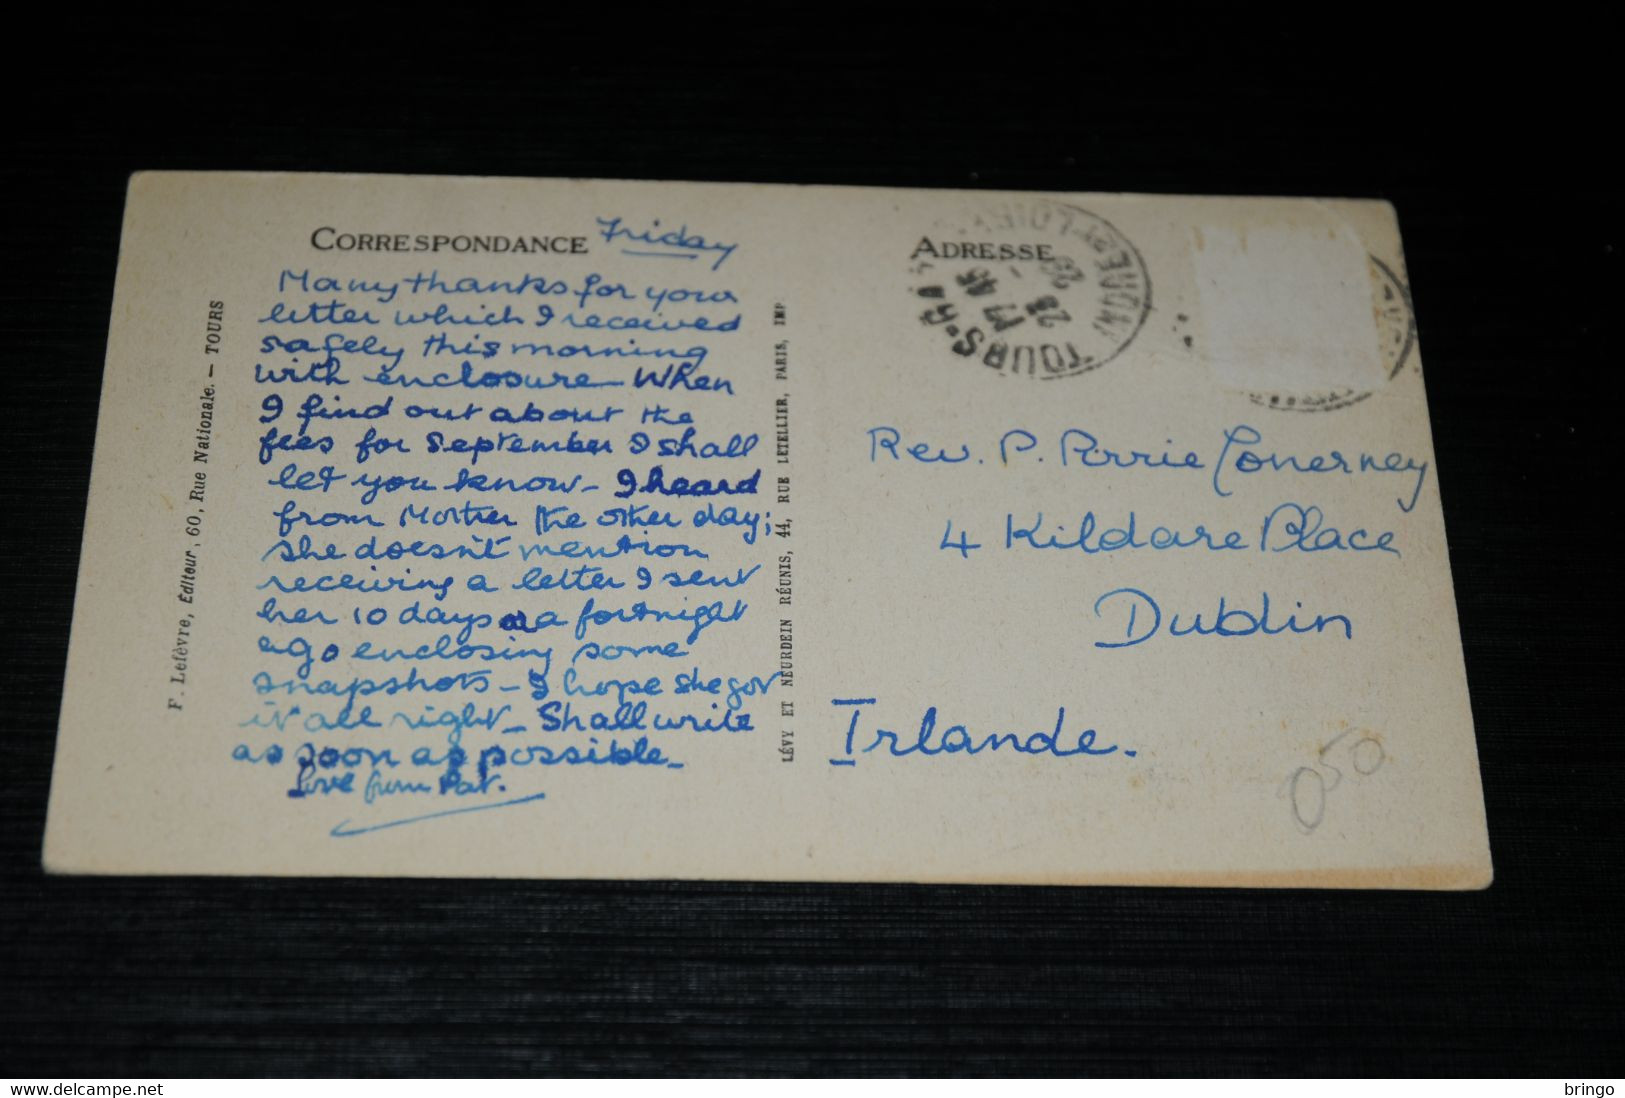 CORRESPONDANCE
Friday
Many thanks for your
letter which I received
safely this morning
with enclosure – When
I find out about the
fees for September I shall
let you know – I heard
from Mother the other day;
she doesn't mention
receiving a letter I sent
her 10 days or a fortnight
ago enclosing some
snapshots – I hope she got
it all right – Shall write
as soon as possible –
Love from Pat.
F. Lefèvre, Éditeur, 60, Rue Nationale. — TOURS
LÉVY ET NEURDEIN RÉUNIS, 44, RUE LETELLIER, PARIS, IMP
ADRESSE
TOURS-GARE
INDRE-ET-LOIRE
Rev. P.
4 Kildare Place
Dublin
Irlande.
050
bringo